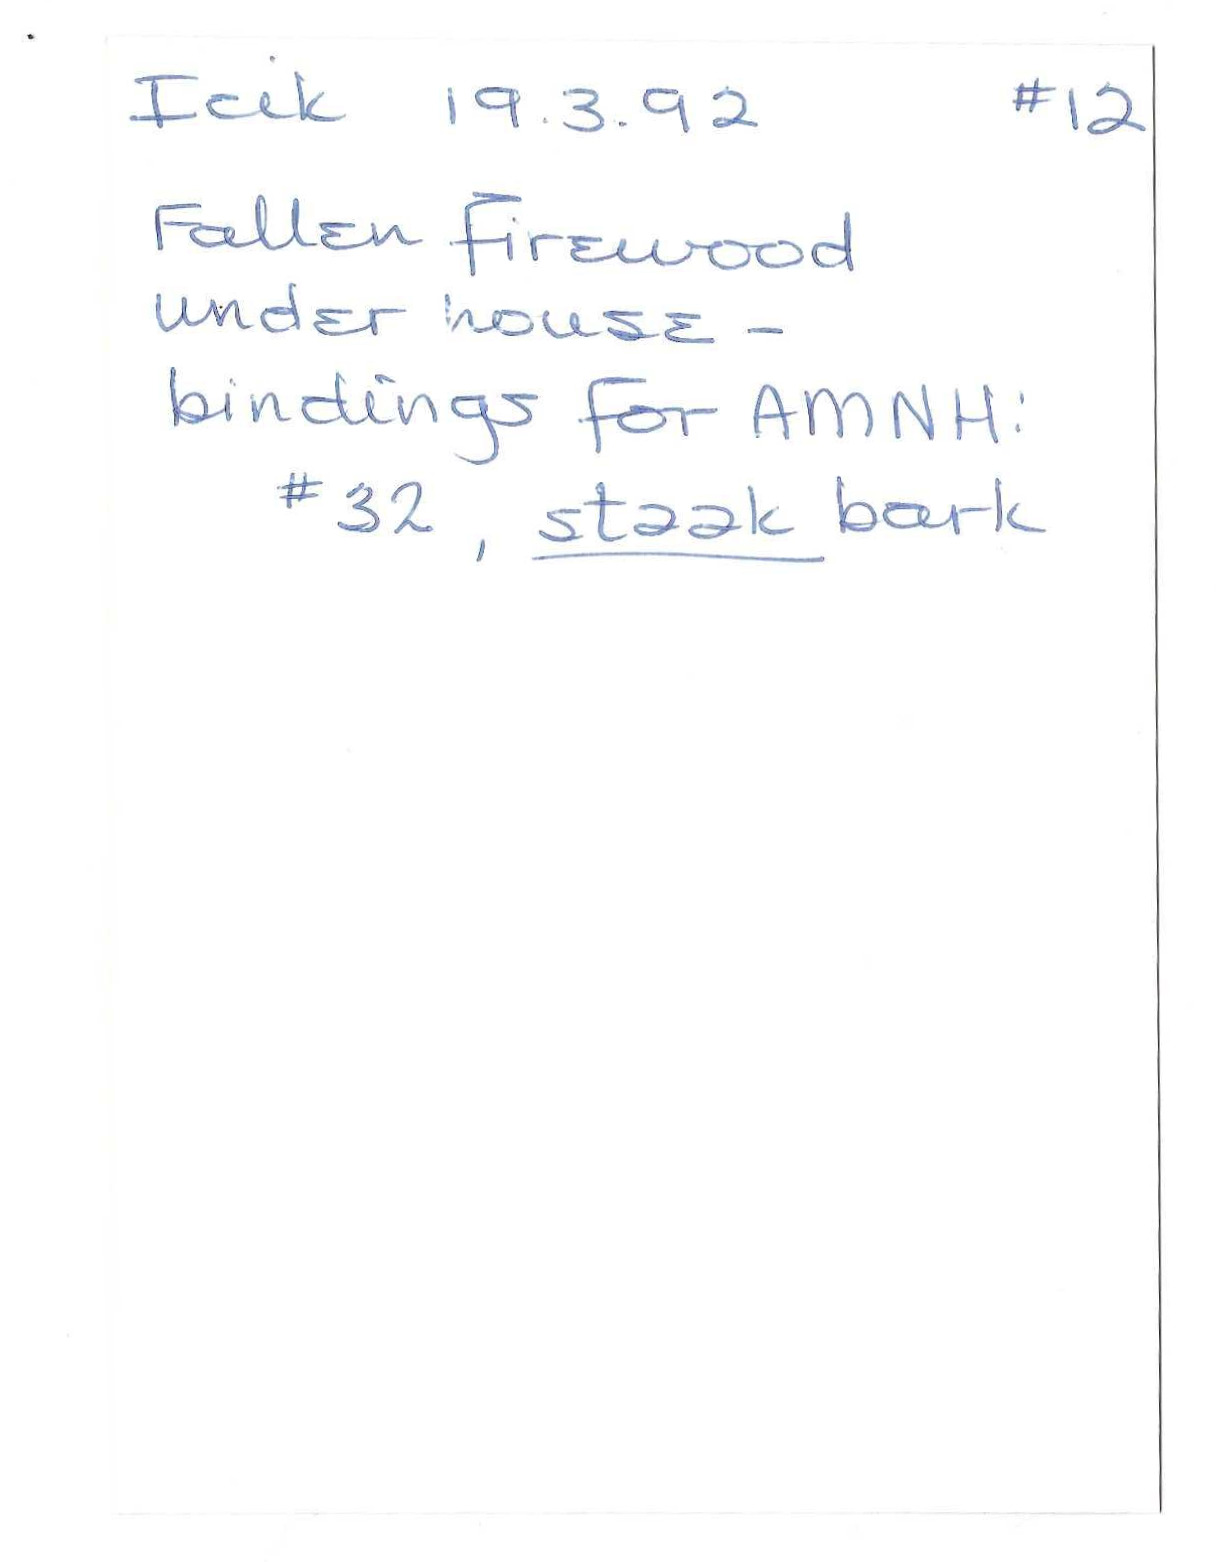 Icik 19.3.92 #12
Fallen firewood
under house -
bindings for AMNH:
#32, stəək bark